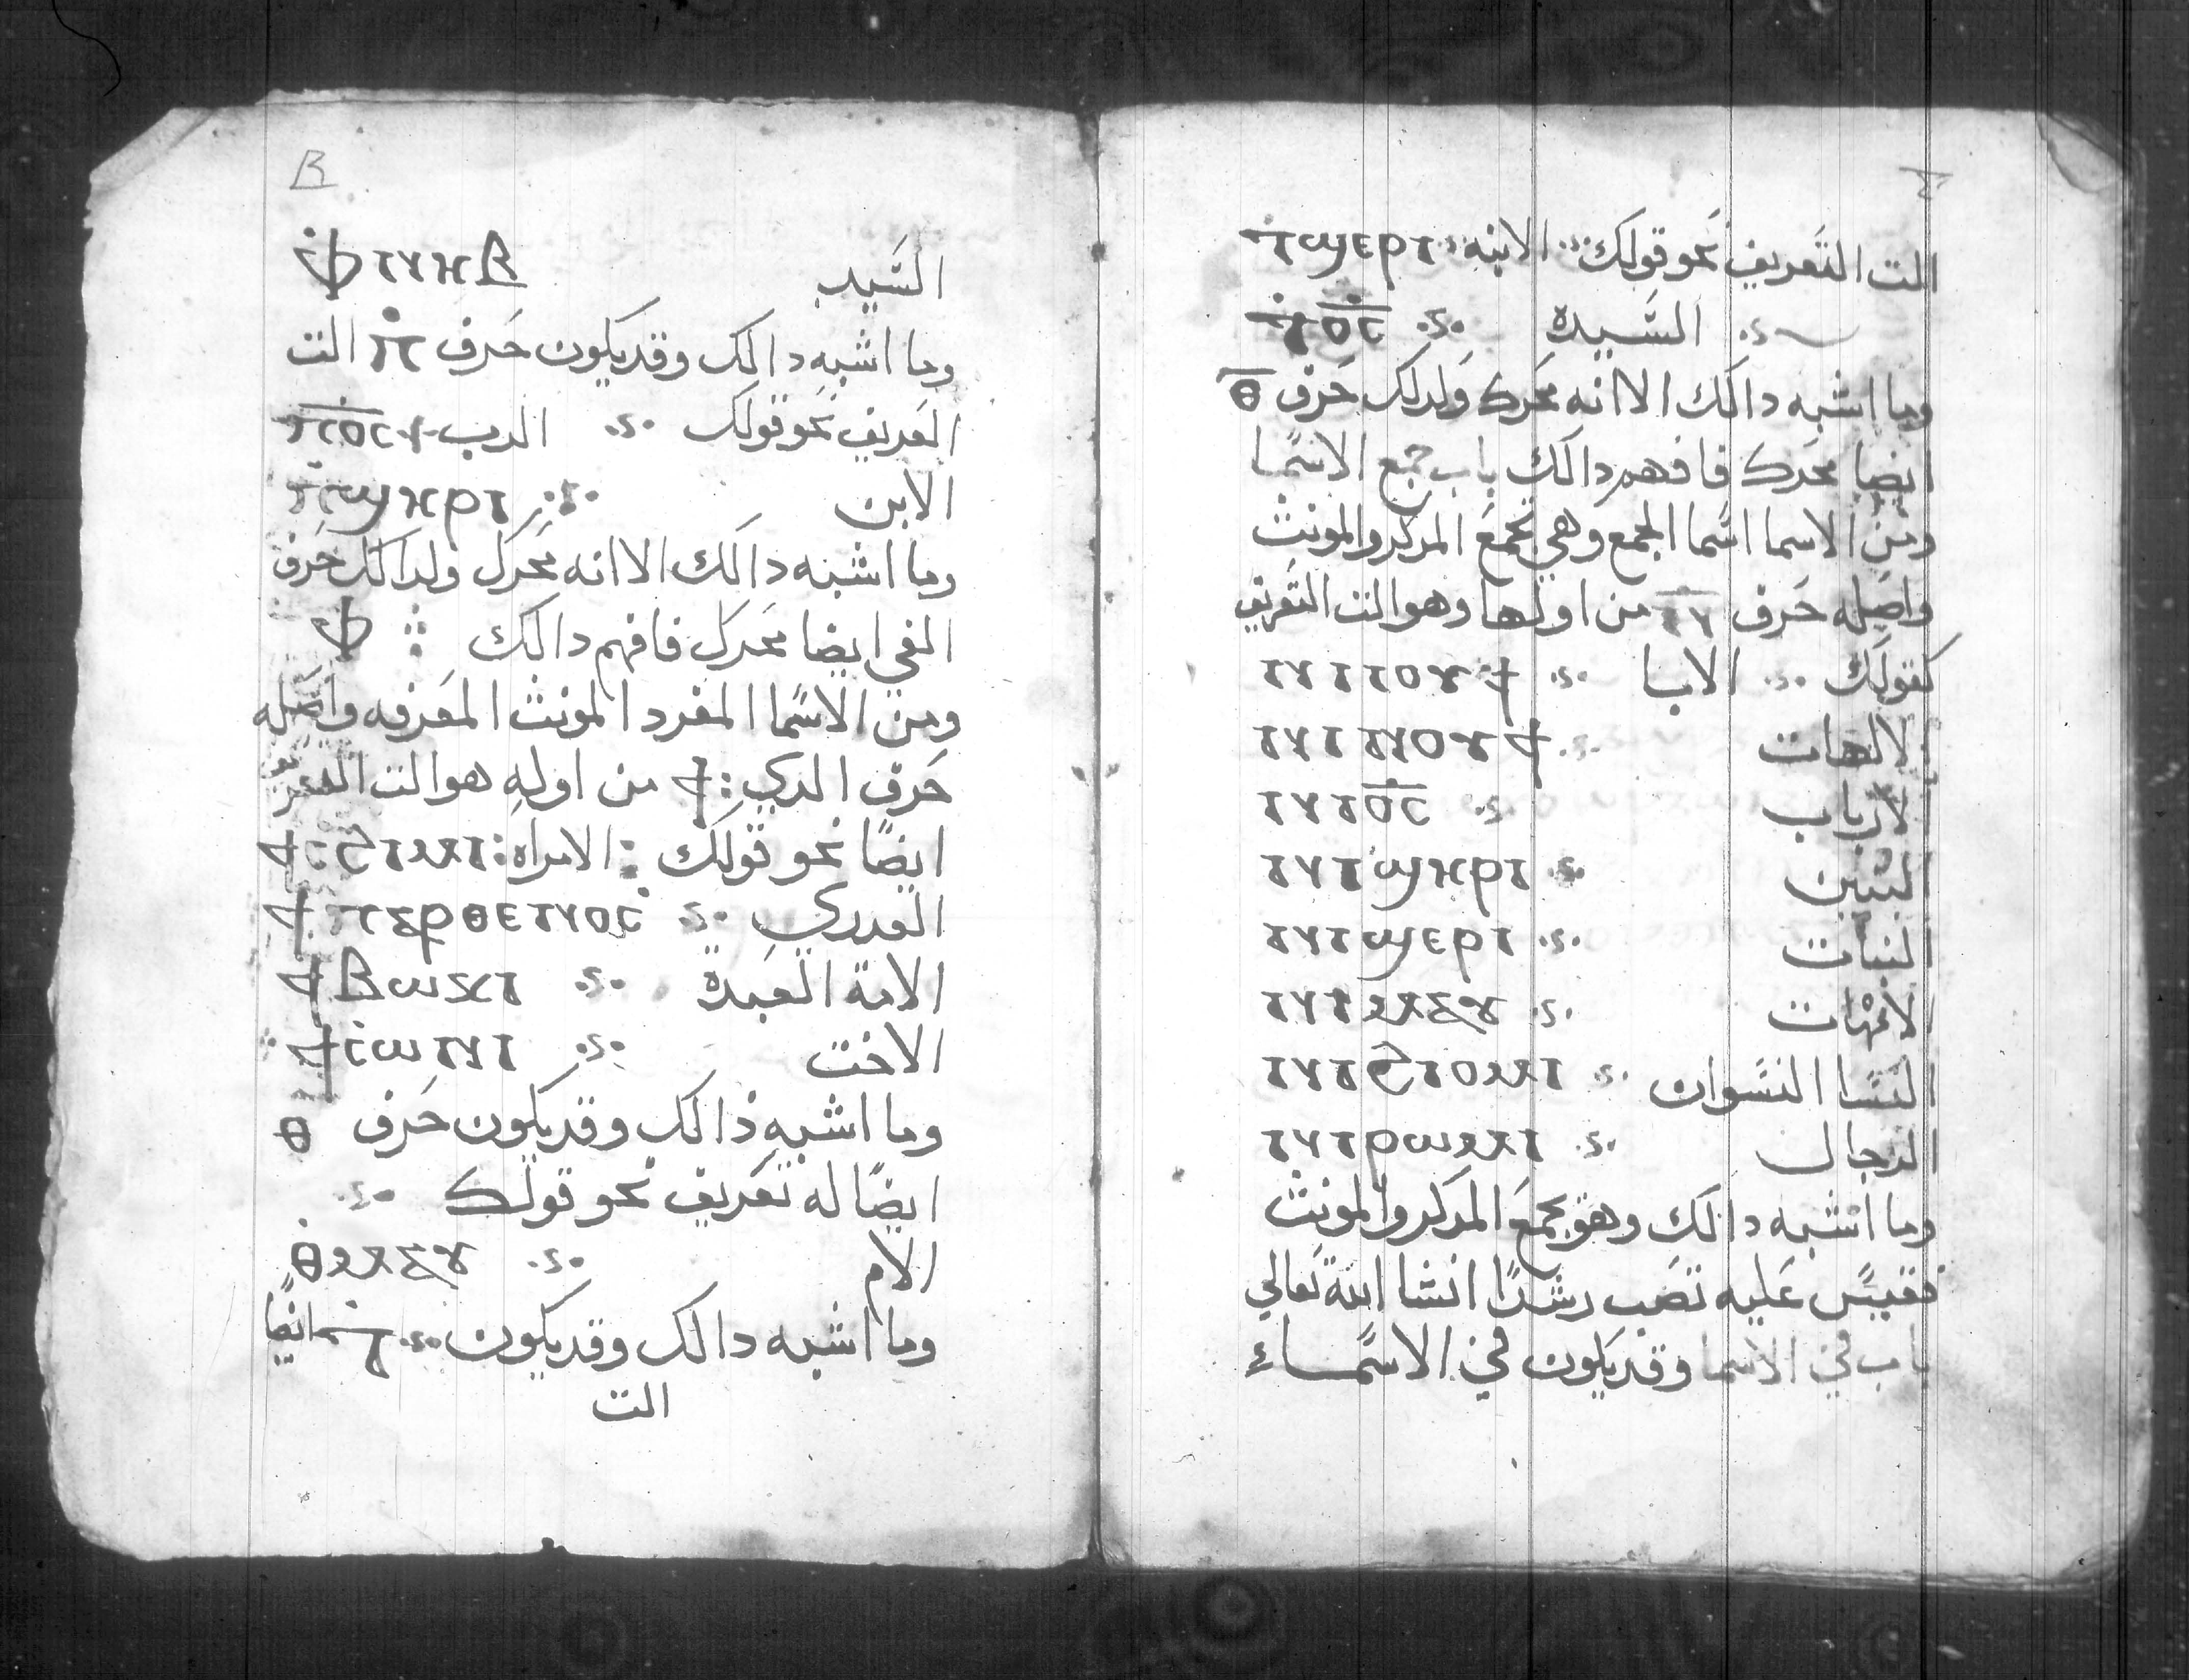 السيد ⲫⲛⲏⲃ
وما اشبه دالك وقديكون حرف ⲡ الت
العريف نحو قولك الرب ⲡⲟ̅ⲥ̅
الابن ⲡϣⲏⲣⲓ
وما اشبه دالك الا انه محرك ولدالك حرف
الفي ايضا محرك فافهم دالك ⲫ
ومن الاسما المفرد المونث المعرفه واصله
حرف الدي : ϯ من اوله هو الت
ايضا نحو قولك : الامراه : ϯⲥϩⲓⲙⲓ
العدري ϯⲡⲁⲣⲑⲉⲛⲟⲥ
الامة العبدة ϯⲃⲱⲕⲓ
الاخت ϯⲥⲱⲛⲓ
وما اشبه ذالك وقديكون حرف ⲑ
ايضا له تعريف نحو قولك
الام ⲑⲙⲁⲩ
وما اشبه دالك وقديكون ⲧ ايضا
الت
الت التعريف نحو قولك الابنه ⲧϣⲉⲣⲓ
السيدة ⲧⲟ̅ⲥ̅
وما اشبه دالك الا انه محرك ولدلك حرف ⲑ
ايضا محرك فافهم دالك باب جمع الاسما
ومن الاسما اسما الجمع وهي تجمع المدكر والمونث
واصله حرف ⲛⲓ من اولها وهو الت التعريف
كقولك الابا ⲛⲓⲓⲟⲩϯ
الالهات ⲛⲓⲛⲟⲩϯ
الارباب ⲛⲓⲟ̅ⲥ̅
البنين ⲛⲓϣⲏⲣⲓ
البنات ⲛⲓϣⲉⲣⲓ
الامهات ⲛⲓⲙⲁⲩ
النسا النسوان ⲛⲓϩⲓⲟⲙⲓ
الرجال ⲛⲓⲣⲱⲙⲓ
وما اشبه دالك وهو يجمع المدكر والمونث
فقيس عليه تصب رشدا انشا الله تعالي
باب في الاسما وقديكون في الاسماء